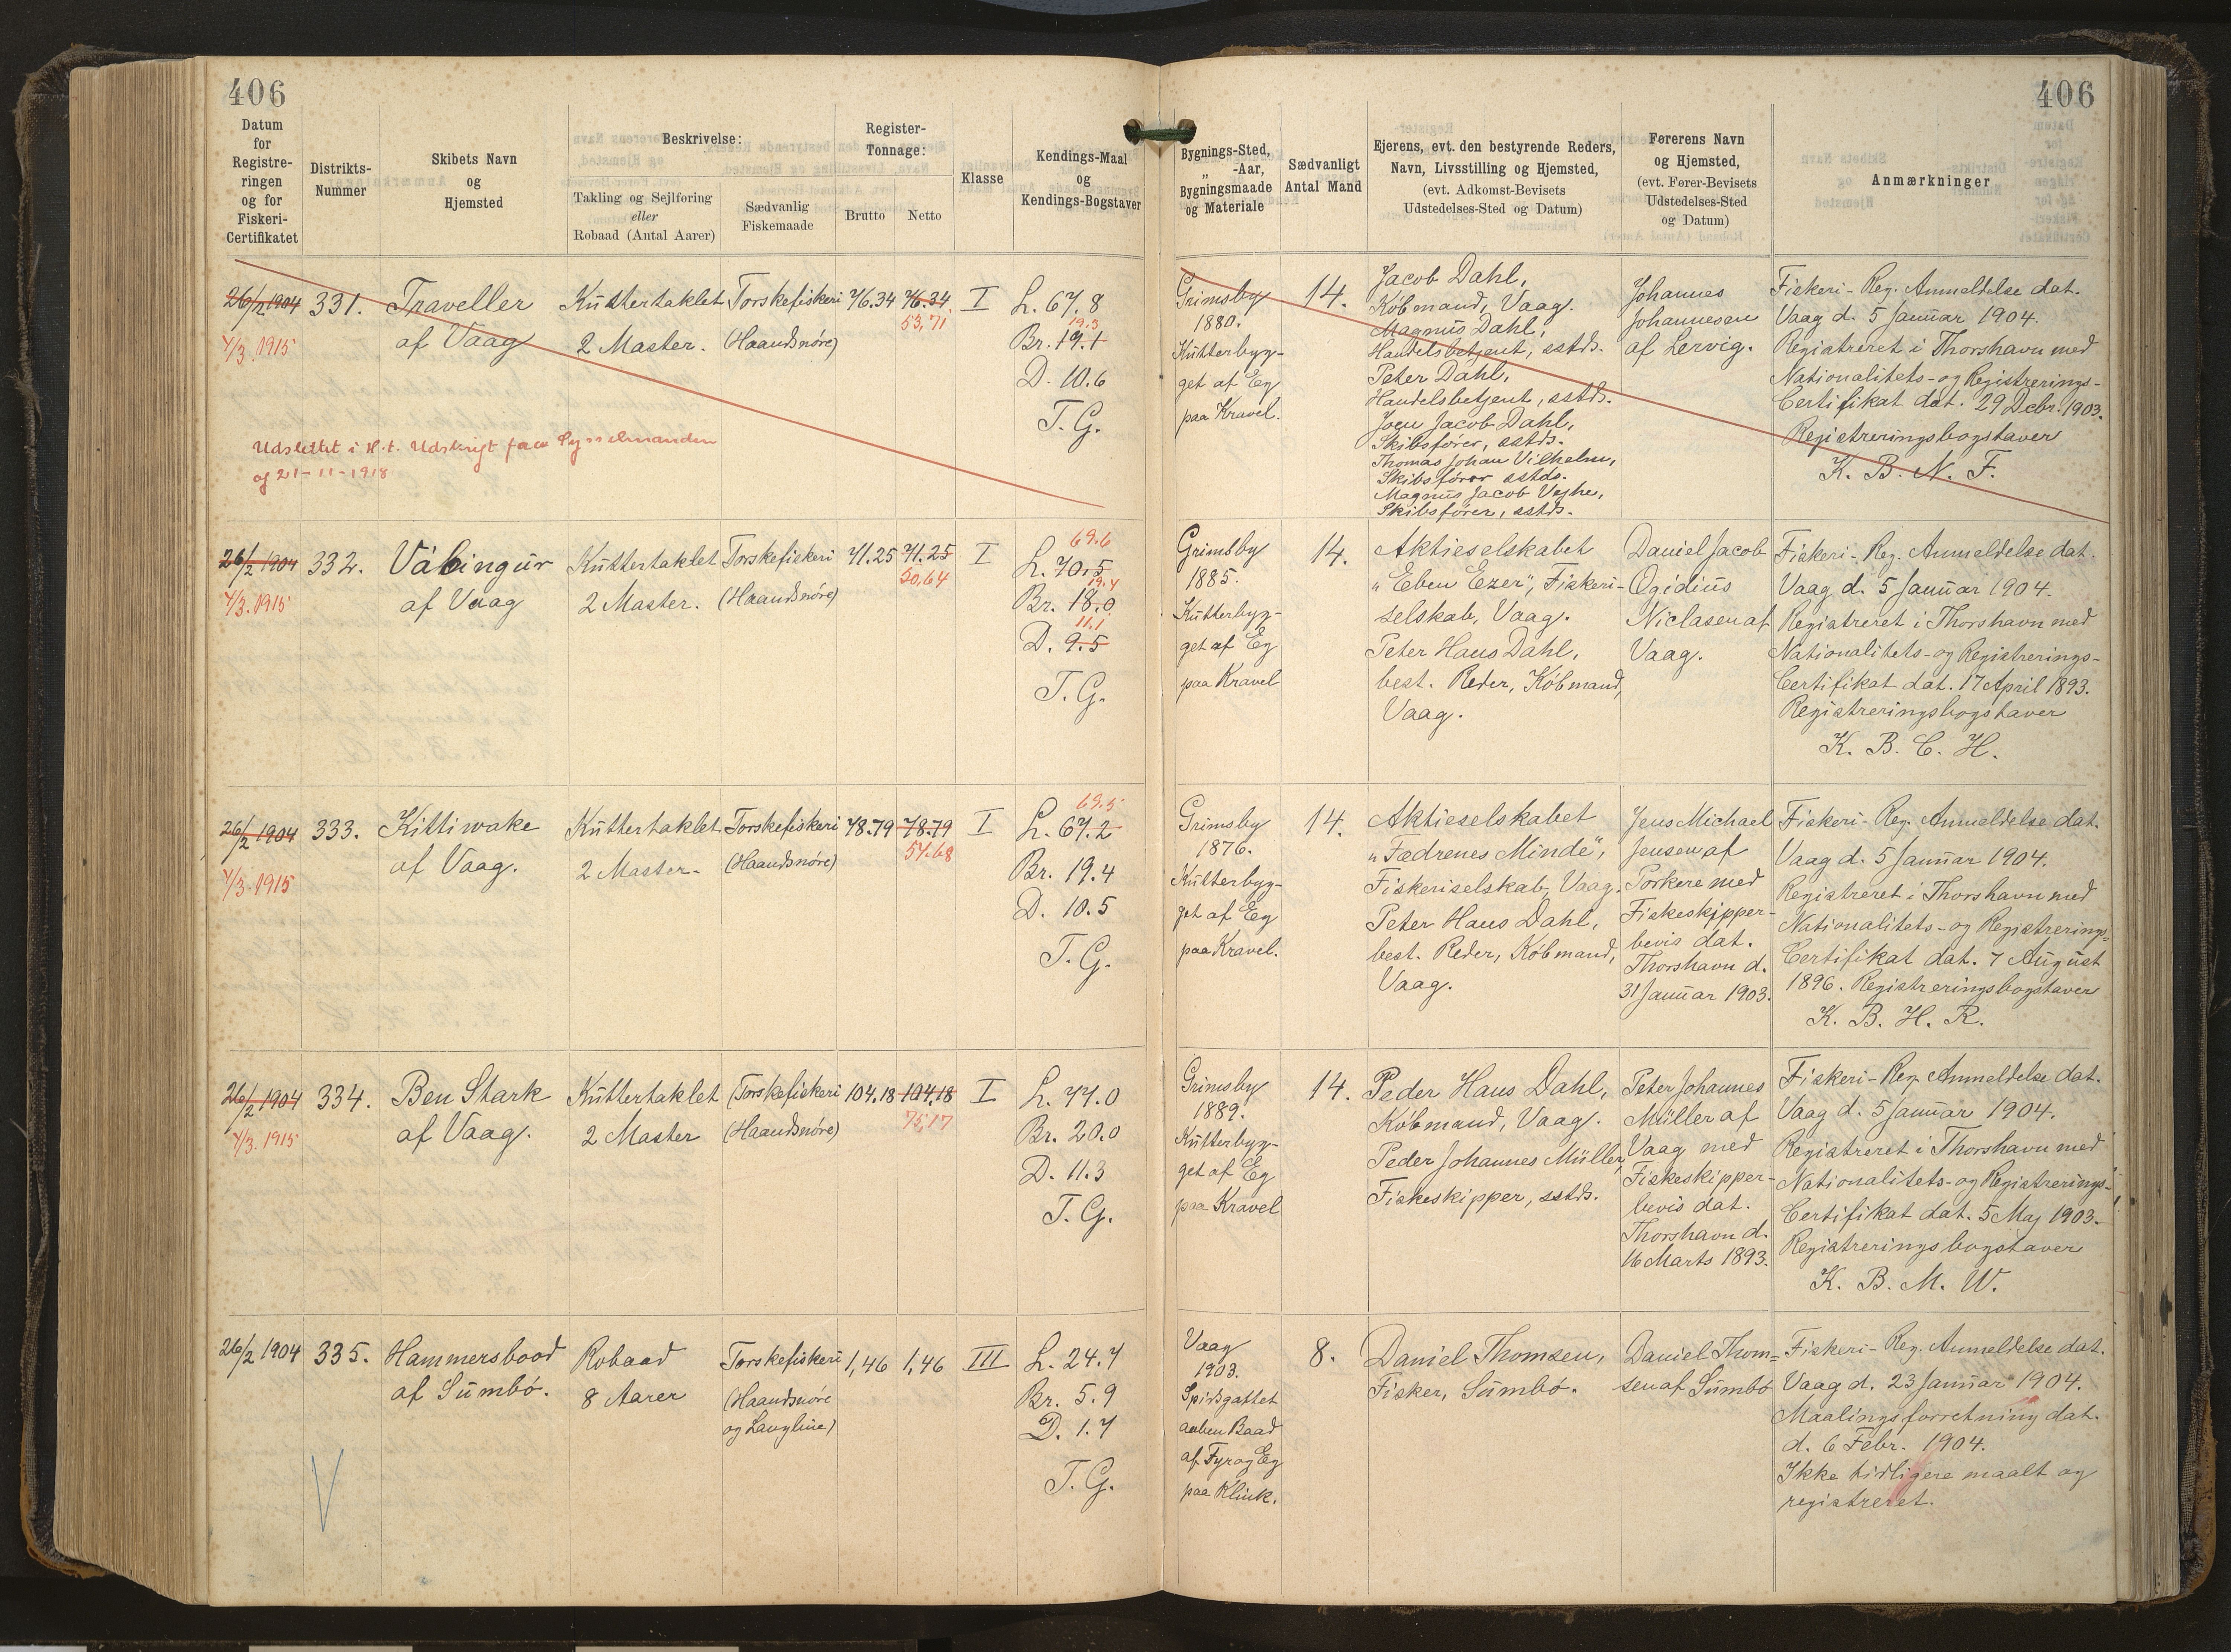 406
406
Datum
for
Registre-
ringen
og for
Fiskeri-
Certifikatet
Distrikts-
Nummer
Skibets Navn
og
Hjemsted
Beskrivelse:
Takling og Sejlføring
eller
Robaad (Antal Aarer)
Sædvanlig
Fiskemaade
Register-
Tonnage:
Brutto
Netto
Klasse
Kendings-Maal
og
Kendings-Bogstaver
Bygnings-Sted,
„ -Aar,
Bygningsmaade
og Materiale
Sædvanligt
Antal Mand
Ejerens, evt. den bestyrende Reders,
Navn, Livsstilling og Hjemsted,
(evt. Adkomst-Bevisets
Udstedelses-Sted og Datum)
Førerens Navn
og Hjemsted,
(evt. Fører-Bevisets
Udstedelses-Sted
og Datum)
Anmærkninger
26/2 1904
4/3. 1915
331.
Traveller
af Vaag
Kuttertaklet
2 Master.
Torskefiskeri
(Haandsnøre)
76.34
76.34
53,71
I
L. 67.8
19.3
Br. 19.1
D. 10.6
T. G.
Udslettet i H.t. Udskrift fra Sysselmanden
af 21-11-1918
Grimsby
1880.
Kutterbyg-
get af Eg
paa Kravel.
14.
Jacob Dahl,
Købmand, Vaag.
Magnus Dahl,
Handelsbetjent, sstds.
Peter Dahl,
Handelsbetjent, sstds.
Joen Jacob Dahl,
Skibsfører, sstds.
Thomas Johan Vilhelm,
Skibsfører sstds.
Magnus Jacob Vejhe,
Skibsfører, sstds.
Johannes
Johannesen
af Lervig.
Fiskeri-Reg. Anmeldelse dat.
Vaag d. 5 Januar 1904.
Registreret i Thorshavn med
Nationalitets- og Registrerings-
Certifikat dat. 29 Debr. 1903.
Registreringsbogstaver
K. B. N. F.
26/2 1904
4/3. 1915
332.
Vábingur
af Vaag
Kuttertaklet
2 Master.
Torskefiskeri
(Haandsnøre)
71.25
71.25
50,64
I
69.6
L. 70.5
19.4
Br. 18.0
11.1
D. 9.5
T. G.
Grimsby
1885.
Kutterbyg-
get af Eg
paa Kravel
14.
Aktieselskabet
„Eben Ezer", Fiskeri-
selskab, Vaag.
Peter Hans Dahl,
best. Reder, Købmand,
Vaag.
Daniel Jacob
Ogidius
Niclasen af
Vaag.
Fiskeri-Reg. Anmeldelse dat.
Vaag d. 5 Januar 1904.
Registreret i Thorshavn med
Nationalitets- og Registrerings-
Certifikat dat. 17 April 1893.
Registreringsbogstaver
K. B. C. H.
26/2 1904
4/3. 1915
333.
Kittiwake
af Vaag.
Kuttertaklet
2 Master.
Torskefiskeri
(Haandsnøre)
78.79
78.79
57.68
I
69.5
L. 67.2
Br. 19.4
D. 10.5
T. G.
Grimsby
1876.
Kutterbyg-
get af Eg
paa Kravel.
14.
Aktieselskabet
„Fædrenes Minde",
Fiskeriselskab, Vaag.
Peter Hans Dahl,
best. Reder, Købmand,
Vaag.
Jens Michael
Jensen af
Porkere med
Fiskeskipper-
bevis dat.
Thorshavn d.
31 Januar 1903.
Fiskeri-Reg. Anmeldelse dat.
Vaag d. 5 Januar 1904.
Registreret i Thorshavn med
Nationalitets- og Registrerings-
Certifikat dat. 7 August
1896. Registreringsbogstaver
K. B. H. R.
26/2 1904
4/3. 1915
334.
Ben Stark
af Vaag.
Kuttertaklet
2 Master
Torskefiskeri
(Haandsnøre)
104.18
104,18
75,17
I
L. 77.0
Br. 20.0
D. 11.3
T. G.
Grimsby
1889.
Kutterbyg-
get af Eg
paa Kravel
14.
Peder Hans Dahl,
Købmand, Vaag.
Peder Johannes Müller,
Fiskeskipper, sstds.
Peter Johannes
Müller af
Vaag med
Fiskeskipper-
bevis dat.
Thorshavn d.
16 Marts 1893.
Fiskeri-Reg. Anmeldelse dat.
Vaag d. 5 Januar 1904.
Registreret i Thorshavn med
Nationalitets- og Registrerings-
Certifikat dat. 5 Maj 1903.
Registreringsbogstaver
K. B. M. W.
26/2 1904
335.
Hammersbood
af Sumbø.
Robaad
8 Aarer
Torskefiskeri
(Haandsnøre
og Langline)
1,46
1,46
III
L. 24.7
Br. 5.9
D. 1.7
T. G.
Vaag
1903.
Spidsgattet
aaben Baad
af Fyr og Eg
paa Klink.
8.
Daniel Thomsen,
Fisker, Sumbø.
Daniel Thom=
sen af Sumbø
Fiskeri-Reg. Anmeldelse dat.
Vaag d. 23 Januar 1904.
Maalingsforretning dat.
d. 6 Febr. 1904.
Ikke tidligere maalt og
registreret.